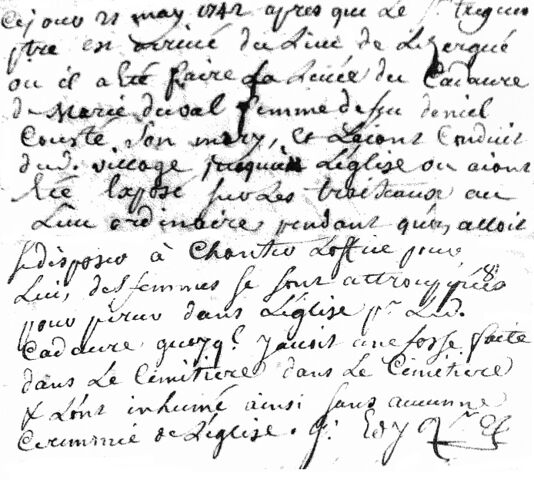 Ce jour 21 may 1742 apres que le Sr
ptre est arrivé du Lieu de Lezergué
ou il a été faire La Levée du Cadavre
de Marie duval femme de feu deniel
Cousté Son mary, et Layant Conduit
dud. village jusqu'à L'église ou aiant
été Exposé sur Les traiteaux au
Lieu ordinaire, pendant qu'on alloit
se disposer à Chanter Loffice pour
Lui, des femmes se sont attrouppées
pour dans L'église pr. Led.
Cadavre quoyq'l y avoit une fosse faite
dans Le Cémitiere dans Le Cémétiere
& L'ont inhumé ainsi sans aucunne
Ceremonie de L'église.